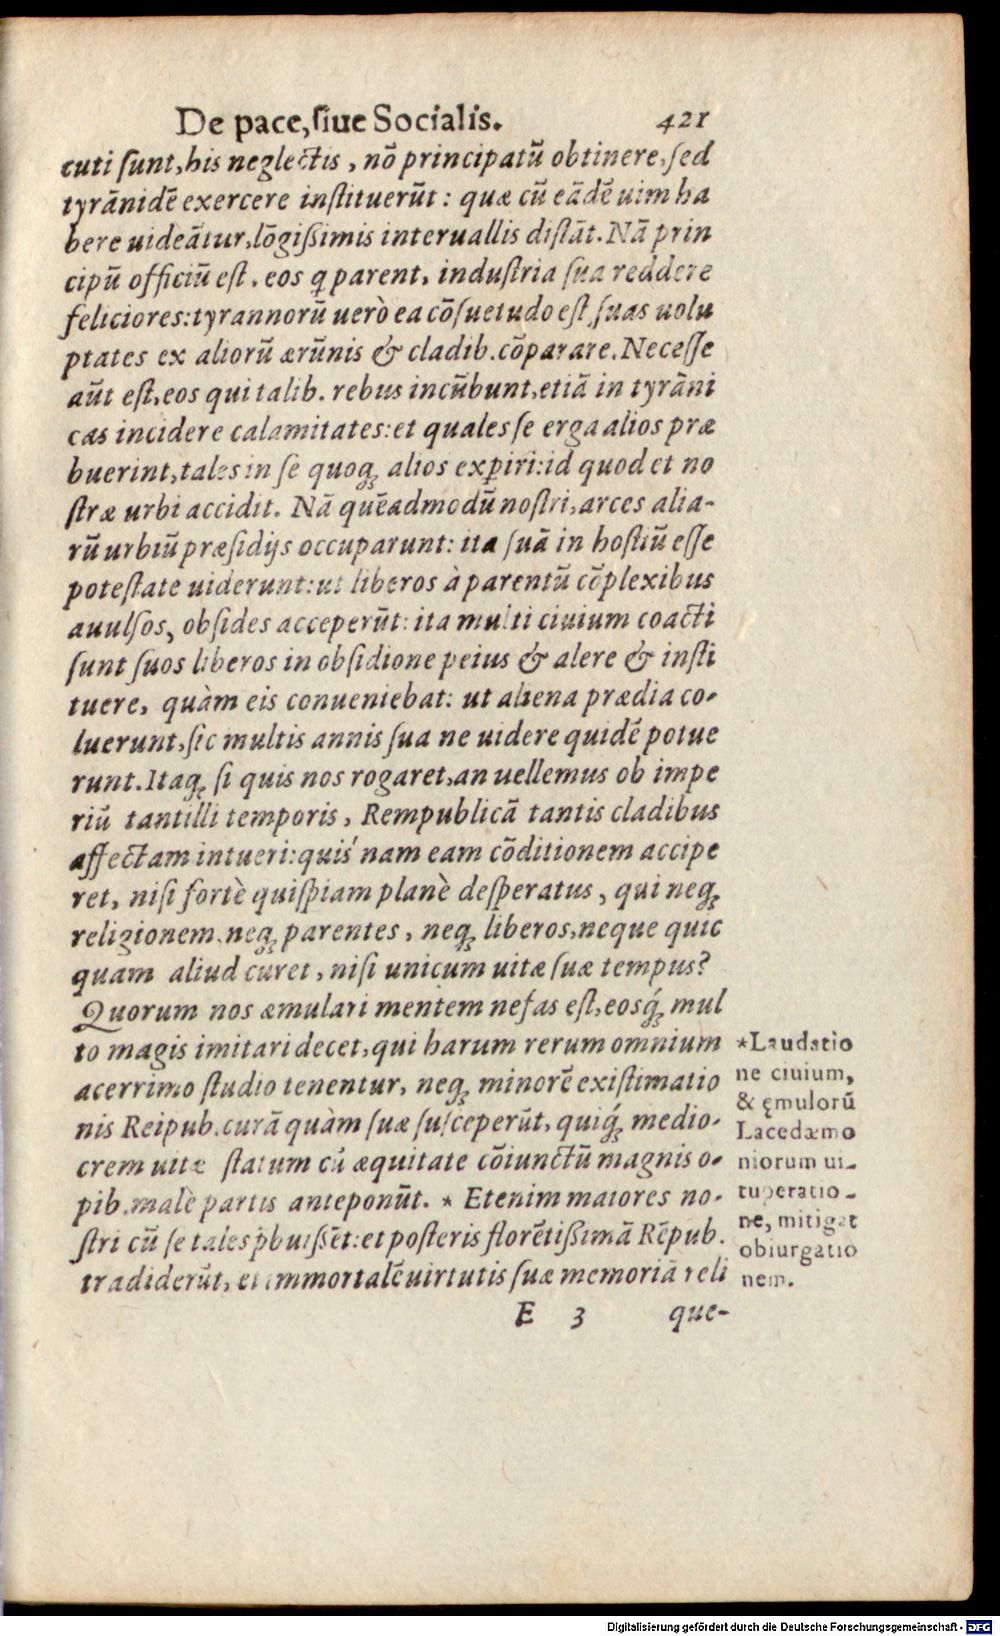 De pace, siue Socialis. 421
cuti sunt, his neglectis, nō principatū obtinere, sed
tyrānidē exercere instituerūt: quæ cū eādē uim ha
bere uideātur, lōgißimis interuallis distāt. Nā prin
cipū officiū est, eos q parent, industria sua reddere
feliciores: tyrannorū uerò ea cōsuetudo est, suas uolu
ptates ex aliorū ærūnis & cladib. cōparare. Necesse
aūt est, eos qui talib. rebus incūbunt, etiā in tyrāni
cas incidere calamitates: et quales se erga alios præ
buerint, tales in se quoq; alios exꝑiri: id quod et no
stræ urbi accidit. Nā quēadmodū nostri, arces alia-
rū urbiū præsidijs occuparunt: ita suā in hostiū esse
potestate uiderunt: ut liberos à parentū cōplexibus
auulsos, obsides acceperūt: ita multi ciuium coacti
sunt suos liberos in obsidione peius & alere & insti
tuere, quàm eis conueniebat: ut aliena prædia co-
luerunt, sic multis annis sua ne uidere quidē potue
runt. Itaq; si quis nos rogaret, an uellemus ob impe
riū tantilli temporis, Rempublicā tantis cladibus
affectam intueri: quis' nam eam cōditionem accipe
ret, nisi fortè quispiam planè desperatus, qui neq;
religionem, neq; parentes, neq; liberos, neque quic
quam aliud curet, nisi unicum uitæ suæ tempus?
Quorum nos æmulari mentem nefas est, eosq́; mul
to magis imitari decet, qui harum rerum omnium
acerrimo studio tenentur, neq; minorē existimatio
nis Reipub. curā quàm suæ susceperūt, quiq́; medio-
crem uitæ statum cū æquitate cōiunctū magnis o-
pib. malè partis anteponūt. * Etenim maiores no-
stri cū se tales p̄buißēt: et posteris florētißimā Rēpub.
tradiderūt, et immortalē uirtutis suæ memoriā reli
E 3 que-
*Laudatio
ne ciuium,
& ęmulorū
Lacedæmo
niorum ui-
tuperatio-
ne, mitigat
obiurgatio
nem.
Digitalisierung gefördert durch die Deutsche Forschungsgemeinschaft - DFG